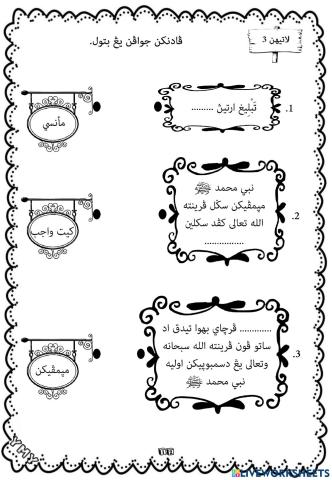 لاتيهن 3
ڤادنكن جواڤن يڠ بتول.
1. تَبْلِيغ ارتيڽ .........
مأنسي
2. نبي محمد ﷺ
مڽمڤيكن سڬل ڤرينته
الله تعالى كڤد سكلين
................
كيت واجب
3. ............ ڤرچاي بهوا تيدق اد
ساتو ڤون ڤرينته الله سبحانه
وتعالى يڠ دسمبوڽيكن اوليه
نبي محمد ﷺ
مڽمڤيكن
LIVEWORKSHEETS